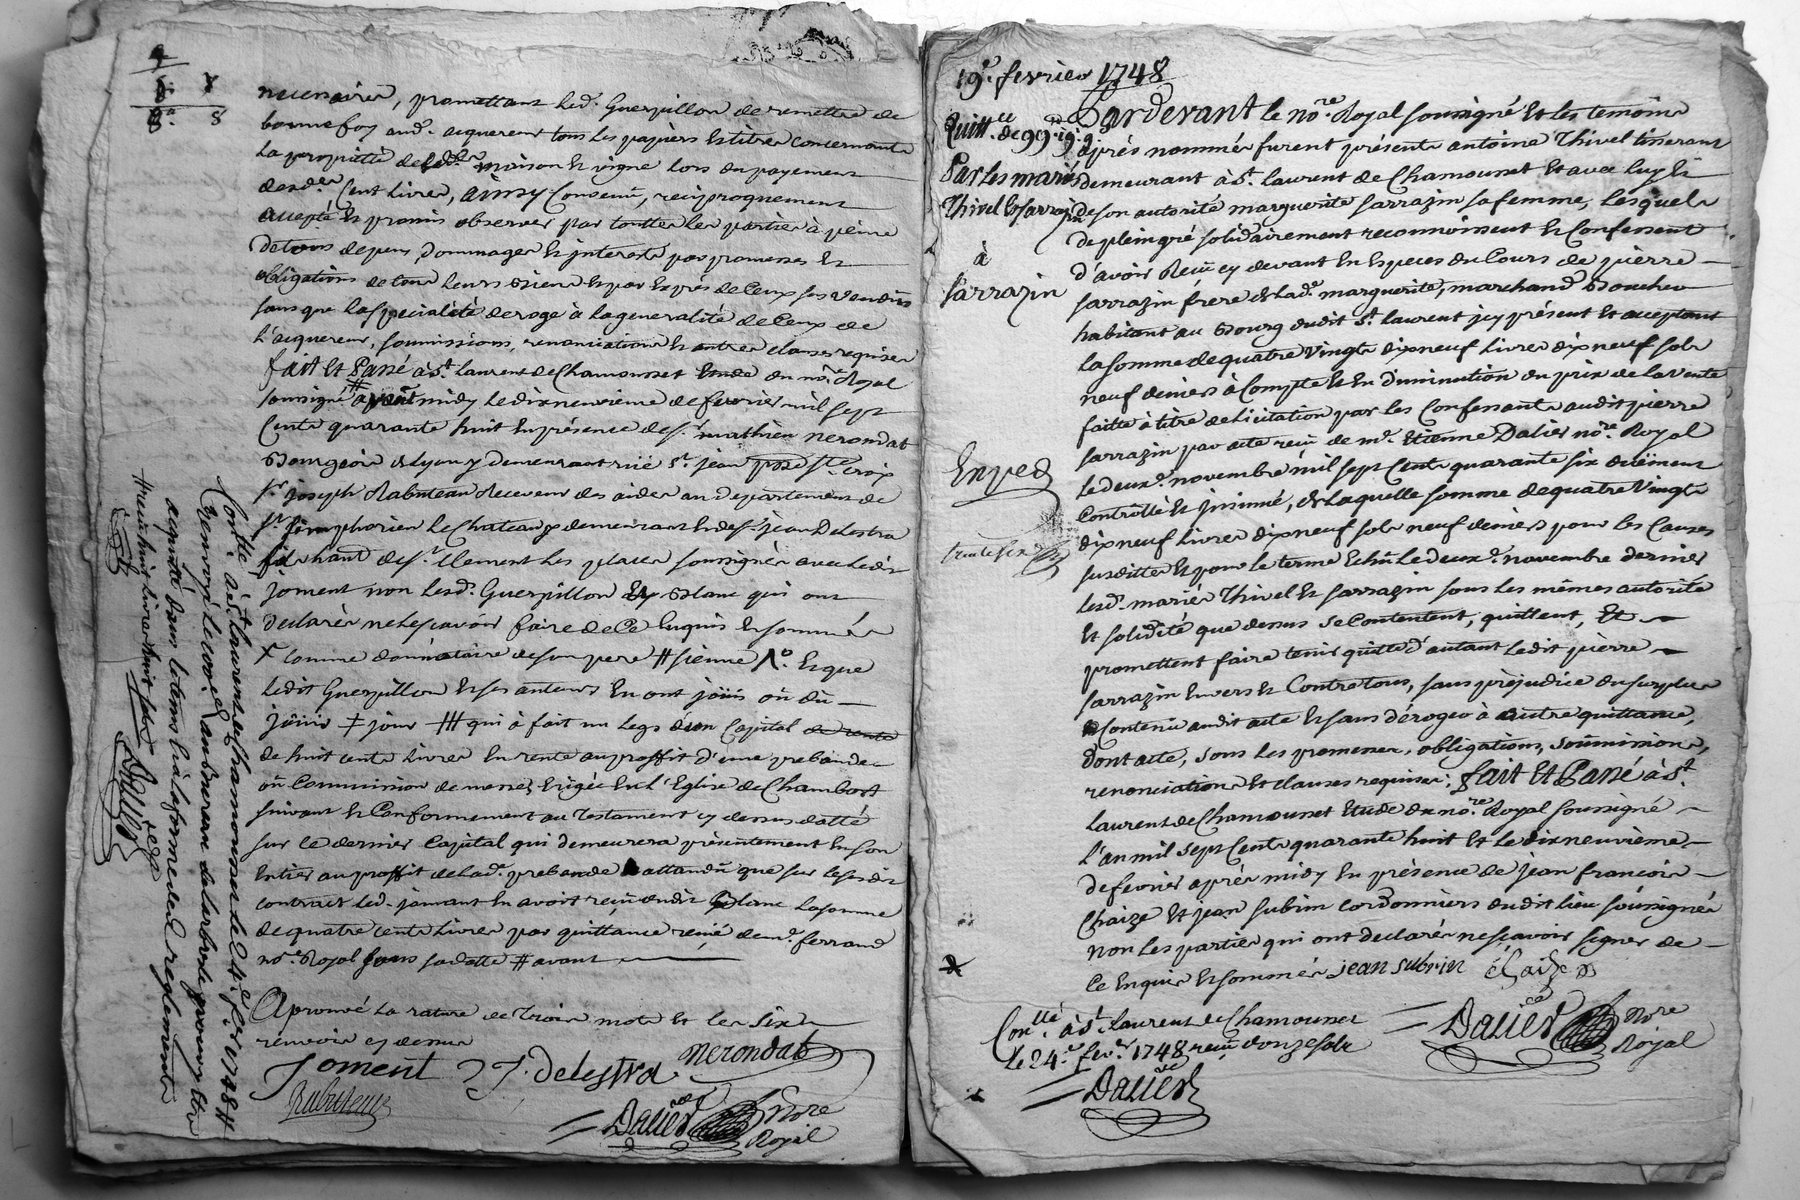 necessaires, promettant led. Guerpillon de remettre de
bonne foy aud. aquereur tous les papiers et titres concernants
la proprieté desd. maison et vigne lors du payement
desd. Cent Livres, ainsy Convenu, reciproquement
accepté et promis observer par touttes les parties à peine
de tous depens, dommages et interets par promesses et
obligations de tous Leurs biens et par Exprès de Ceux
sans que la specialité deroge à la generalité de Ceux de
L'aquereur, soumissions, renonciations et autres clauses requises
fait et Passé à St. Laurent de Chamousset Etude du nore. Royal
soussigné avant midy le dixneuvieme de fevrier mil sept
Cents quarante huit En présence de sr. mathieu nerondat
Bourgeois de Lyon y demeurant ruë st. jean sts. Croix
sr. joseph Rabuteau Receveur des aides au departement de
st. simphorien Le Chateau y demeurant et de sr. jean Delestra
soussignés avec ledit
joment non lesd. Guerpillon et Blanc qui ont
declarés ne le sçavoir faire de Ce Enquis et sommés
X comme donnataire de son pere # sienne Et que
ledit Guerpillon et ses auteurs En ont joüis où dû
joüir ‡ jour qui à fait un Legs d'un Capital de rente
de huit cents Livres En rente au proffit d'une prebande
où Commission de messes Erigée En l'Eglise de Chambost
suivant et Conformement au Testament cy dessus datté
sur ce dernier Capital qui demeurera présentement En son
Entier au proffit de lad. prebande attandû que sur lesusdit
contract led. joment En avoit reçu dudit Blanc La somme
de quatre cents Livres par quittance reçuë de me. ferrand
nore. Royal sous sa datte # avant
Aprouvé La rature de Trois mots et les six
renvois cy dessus
Joment J. Delestra nerondat
Rabuteau
Dalier nore
Royal
Contlé. à St. Laurent de Chamousset le 24e. fer. 1748 #
renvoyé le 100e. au Bureau de Larbresle pour y être
aquitté dans le tems et à la forme des reglements
# reçu huit Livres huit sols
Dalier
19e. fevrier 1748
Quittce. de 99ll 19s 9d
Par Les mariés
Thivel Et Sarrazin
à
sarrazin
Exped
Pardevant le nore. Royal soussigné Et les temoins
aprés nommés furent présents antoine Thivel tisserant
demeurant à St. Laurent de Chamousset Et avec luy Et
de son autorité marguerite sarrazin sa femme, Lesquels
de plein gré solidairement reconnoissent et Confessent
d'avoir Reçu cy devant En Especes du Cours de pierre
sarrazin frere de lad. marguerite, marchand Boucher
habitant au Bourg dudit St. Laurent jcy présent Et acceptant
La somme de quatre vingts dixneuf Livres dix neuf sols
neuf deniers à Compte Et En Diminution du prix de la vente
faitte à titre de licitation par les Confessants audit pierre
sarrazin par acte reçu de me. Etienne Dalier nore. Royal
Le deuxe. novembre mil sept Cents quarante six düëment
Controllé Et jnsinué, de Laquelle somme de quatre vingts
dixneuf Livres dixneuf sols neuf deniers pour les Causes
susdittes Et pour le terme Echû Le deuxe. novembre dernier
Lesd. mariés Thivel Et sarrazin sous les mêmes autorité
Et solidité que dessus se Contentent, quittent, Et
promettent faire tenir quitte d'autant Ledit pierre
sarrazin Envers Et Contre tous, sans préjudice du surplus
Contenu audit acte Et sans déroger à autre quittance,
dont acte, sous les promesses, obligations, soûmissions,
renonciations Et clauses requises; fait Et Passé à St.
Laurent de Chamousset Etude du nore. Royal soussigné
L'an mil sept Cents quarante huit Et le dix neuvième
de fevrier aprés midy En présence de jean francois
Chaize Et jean subrin cordonniers dudit lieu soussignés
non les parties qui ont declarés ne sçavoir signer de
Ce Enquis Et sommés jean subrin Chaize
Dalier Nore
Royal
Contlé à St. Laurent de Chamousset
Le 24e. fevr. 1748 reçu douze sols
Dalier